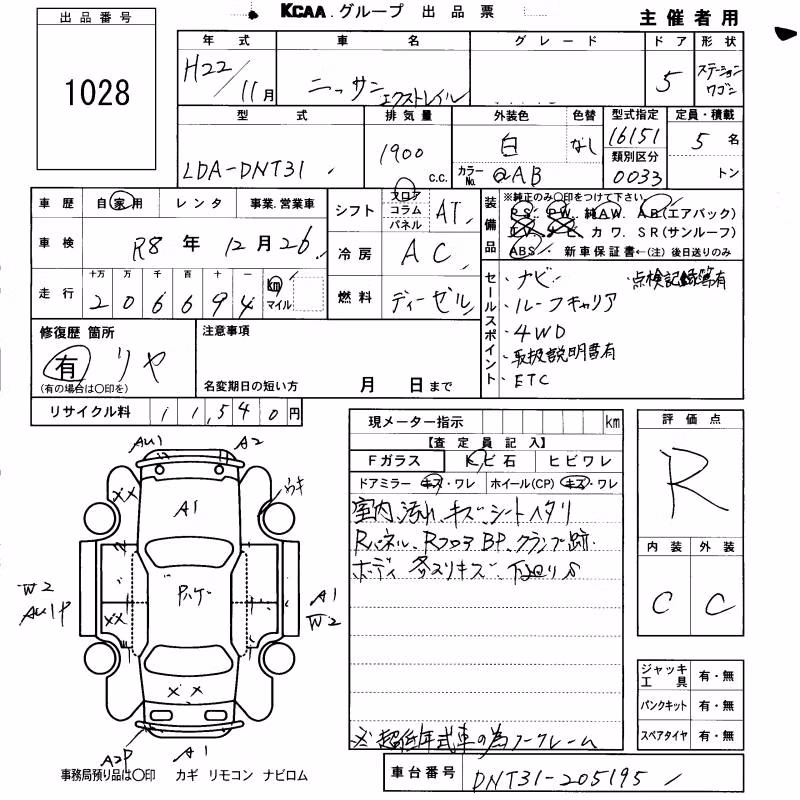 出品番号
1028
KCAA グループ 出品票
主催者用
年式 車名 グレード ドア 形状
H22/11月 ニッサン エクストレイル 5 ステーションワゴン
型式 排気量 外装色 色替 型式指定 定員・積載
LDA-DNT31 1900 c.c. 白 なし 16151 5名
カラーNo. @AB 類別区分 0033 トン
車歴 自家用 レンタ 事業.営業車
車検 R8年12月26
走行 十万 万 千 百 十 一
206694 km マイル
シフト フロア コラム パネル AT
冷房 AC
燃料 ディーゼル
装備品 ※純正のみ〇印をつけて下さい
PS. PW. 純AW. AB(エアバック)
T.V. ナビ カワ. SR(サンルーフ)
ABS. 新車保証書←(注) 後日送りのみ
セールスポイント
・ナビ ・点検記録簿有
・ルーフキャリア
・4WD
・取扱説明書有
・ETC
修復歴 箇所
有 リヤ
(有の場合は〇印を)
注意事項
名変期日の短い方 月 日まで
リサイクル料 11,540円
現メーター指示 km
【査定員記入】
Fガラス トビ石 ヒビワレ
ドアミラー キズ・ワレ ホイール(CP) キズ・ワレ
室内 汚れ、キズ、シートヘタリ
Rパネル、Rフロア BP、クランプ跡.
ボディ 多スリキズ
※超低年式車の為ノークレーム
評価点
R
内装 外装
C C
ジャッキ工具 有・無
パンクキット 有・無
スペアタイヤ 有・無
AU1 A2
XX A1 ウキ
W2 AU1P A1 W2
XX
XX
A2P A1
事務局預り品は〇印 カギ リモコン ナビロム
車台番号 DNT31-205195